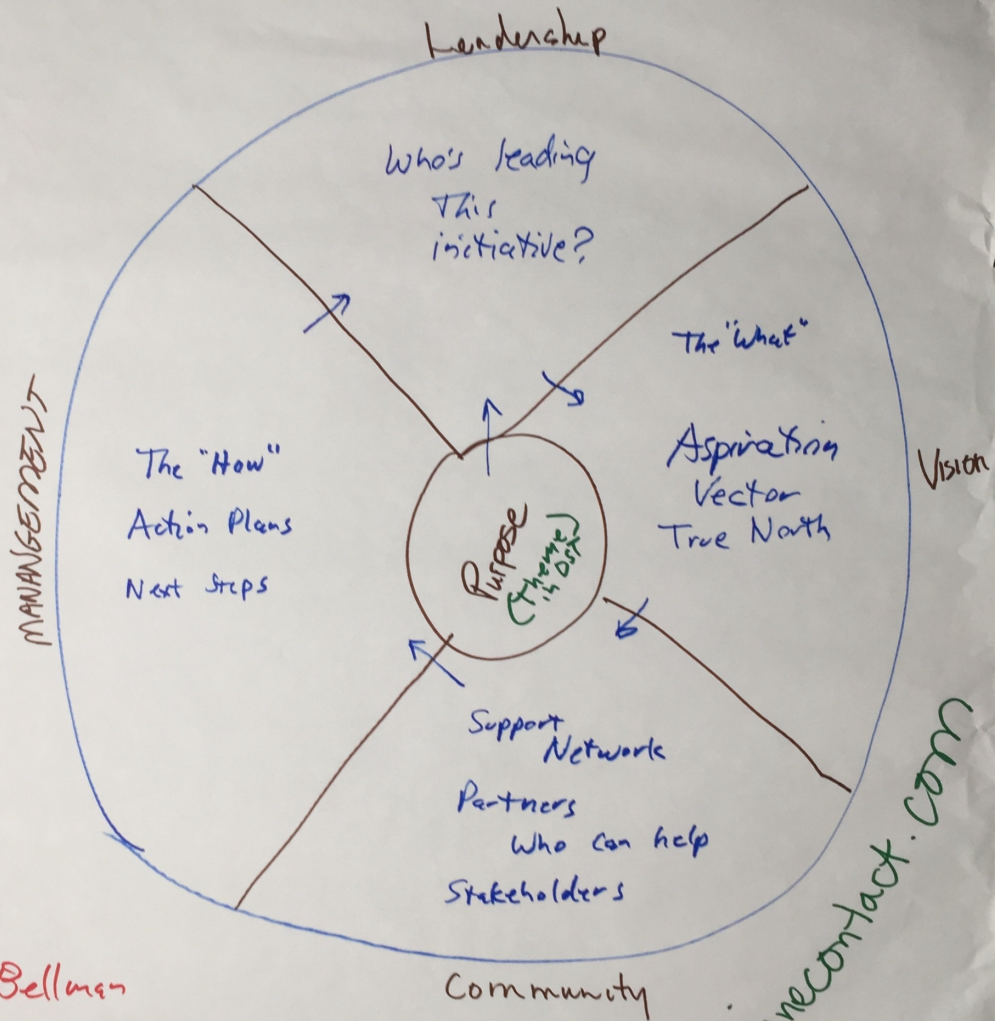 Leadership
Who's leading
This
initiative?
The "What"
Aspiration
Vector
True North
Vision
MANANGEMENT
The "How"
Action Plans
Next Steps
Purpose
(theme
in OST)
Support
Network
Partners
Who can help
Stakeholders
Community
Bellman
necontact.com